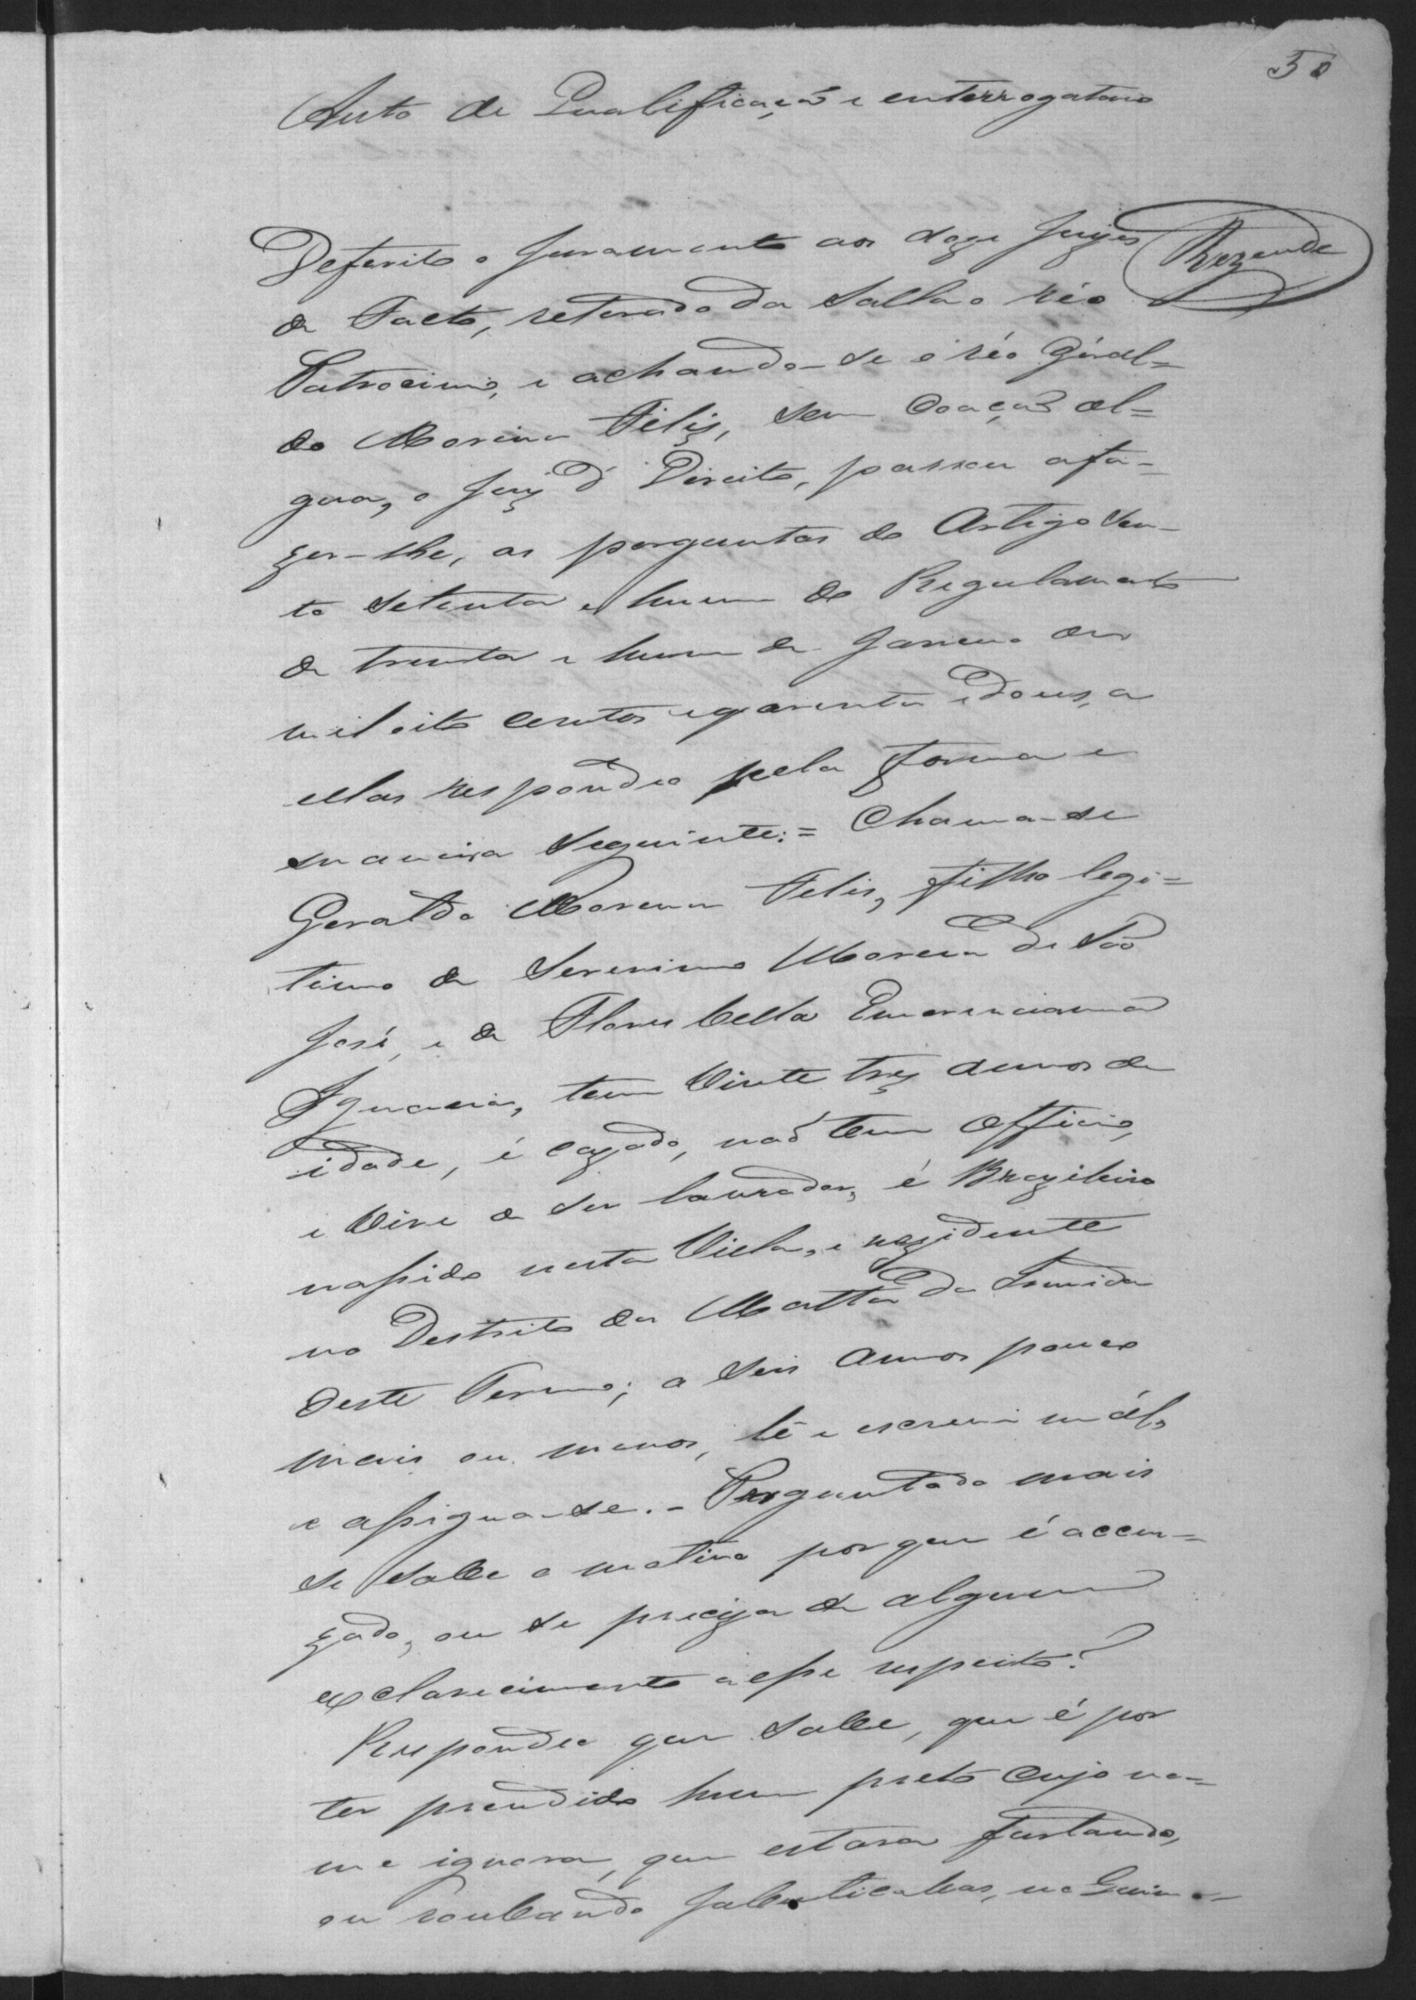 50
Auto de Qualificação e enterrogatorio
Deferito o Juramento aos doze Juizes
Rezende
de Facto, retirado da Salla o réo
Patrocinio, e achando-se o réo Géral=
do Moreira Feliz, sem Coação al=
gua, o Juiz d' Direito, passou a fa-
zer-lhe, as perguntas do Artigo Cen-
to Setenta e hum do Regulamento
de trinta e hum de Janeiro de
mil oito centos e qarenta e Dous, a
ellas respondeo pela forma e
maneira Seguinte: = Chama-se
Geraldo Moreira Felis, filho legi=
timo de Serenimo Moreira de São
José, e de Flores bella Emerenciana
Ignacia, tem Vinte trez annos de
idade, é cazado, naõ tem officio,
e Vive de Ser laurador, é Brazileiro
nassido nesta Villa, e rezidente
no Destrito da Matta do
deste Termo; a Seis annos pouco
mais ou menos, lê e escreve mál,
e assigna-se. - Perguntado mais
se Sabe o motivo por que é accu-
zado, ou se preciza de algum
exclarecimento a esse respeito?
Respondeo que Sabe, que é pór
ter prendido hum preto Cujo no-
me ignora, que estava furtando,
ou roubando Jabuticabas, no